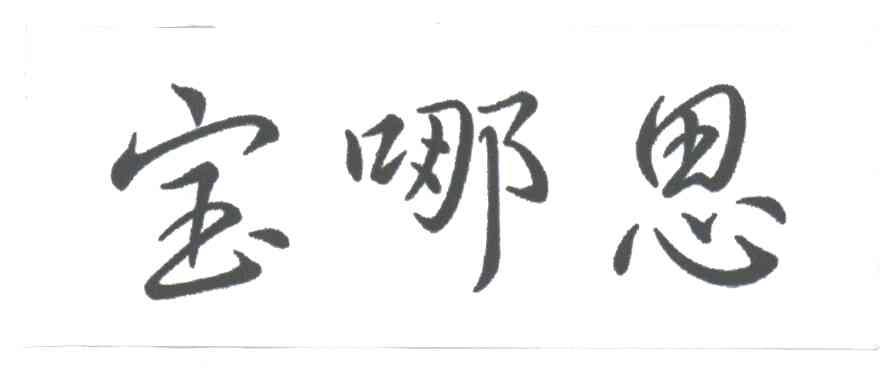 宝哪思